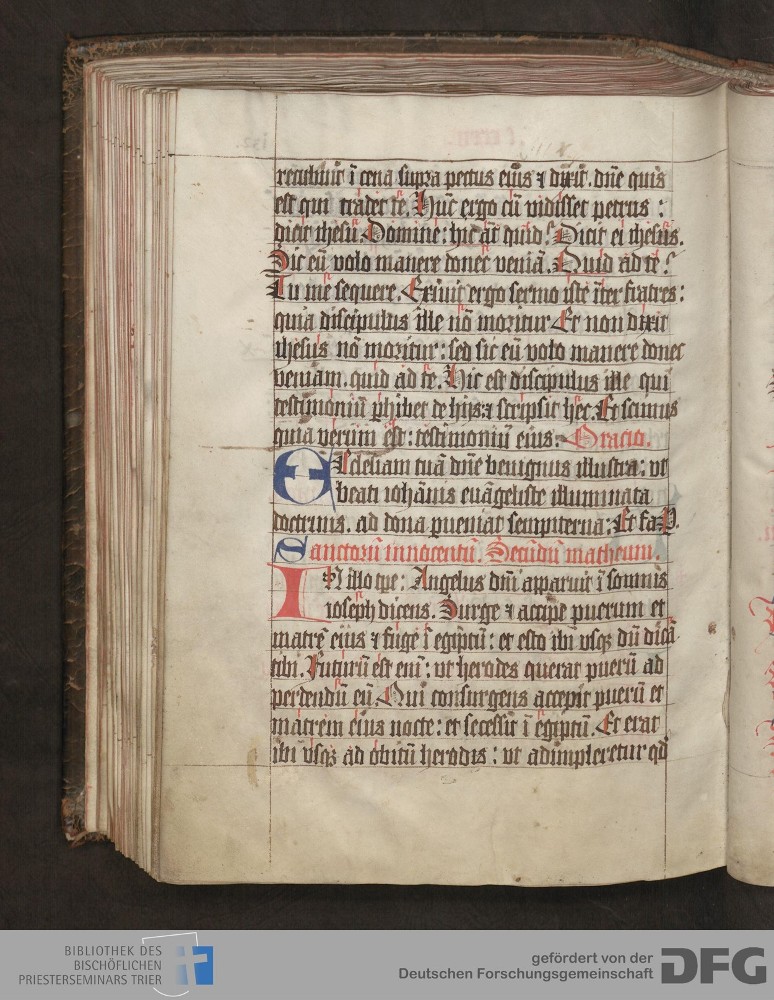 recubuit ī cena supra pectus eius ⁊ dixit. dn̄e quis
est qui tradet te. Hūc ergo cū vidisset petrus :
dicit ihesu. Domine : hic āt quid? Dicit ei ihesus.
Sic eū volo manere donec veniā. Quid ad te?
Tu me sequere. Exiuit ergo sermo iste īter fratres :
quia discipulus ille nō moritur Et non dixit
ihesus nō moritur : sed sic eū volo manere donec
veniam. quid ad te. Hic est discipulus ille qui
testimoniū phibet de hijs : ⁊ scripsit hec. Et scimus
quia verum est : testimoniū eius. Oracio.
Ecclesiam tuā dn̄e benignus illustra : vt
beati iohānis euāgeliste illuminata
doctrinis. ad dona pueniat sempiterna : Et fa
Sanctorū innocentū. Secūdū matheum.
IN illo tpe : Angelus dnī apparuit ī somnis
ioseph dicens. Surge ⁊ accipe puerum et
matrē eius ⁊ fuge ī egiptū : et esto ibi vsqꝫ dū dicā
tibi. Futurū est enī : vt herodes querat puerū ad
perdendū eū. Qui consurgens accepit puerū et
matrem eius nocte : et secessit ī egiptū. Et erat
ibi vsqꝫ ad obitū herodis : vt adimpleretur qd
BIBLIOTHEK DES
BISCHÖFLICHEN
PRIESTERSEMINARS TRIER
gefördert von der
Deutschen Forschungsgemeinschaft
DFG